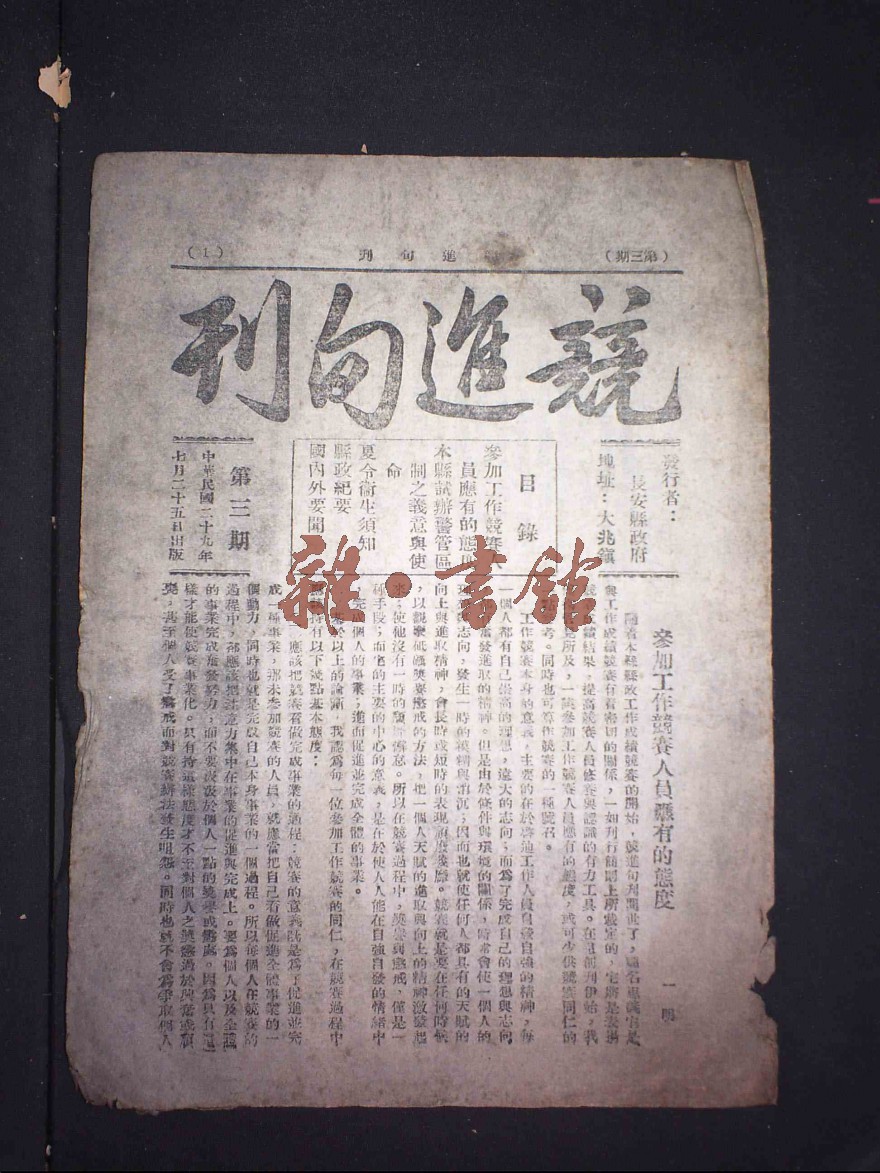 （第三期）　進旬刊　（1）
競進旬刊
發行者：
長安縣政府
地址：大兆鎮
目錄
參加工作競賽人
員應有的態度
本縣試辦警管區
制之義意與使
命
夏令衞生須知
縣政紀要
國內外要聞
第三期
中華民國二十九年
七月二十五日出版
參加工作競賽人員應有的態度
一明
隨着本縣縣政工作成績競賽的開始，競進旬刊問世了，
與工作成績競賽有着密切的關係，一如刊行簡則上所規定的，它將是表揚
成績結果，提高競賽人員修養與認識的有力工具。在這創刊伊始，我
所及，一談參加工作競賽人員應有的態度，或可少供競賽同仁的
參考。同時也可算作競賽的一種號召。
工作競賽本身的意義，主要的在於發迪工作人員自發自強的精神，每
一個人都有自己崇高的理想，遠大的志向；而爲了完成自己的理想與志向
奮發進取的精神。但是由於條件與環境的關係，時常會使一個人的
志向，發生一時的頹精與消沉；因而也就使任何人都具有的天賦的
向上與進取精神，會長時或短時的表現頹廢殘廢。競賽就是要在任何時候
，以觀摩砥礪獎賽懲戒的方法，把一個人天賦的進取與向上的精神激發起
來；使他沒有一時的頹惰。所以在競賽過程中，獎賽與懲戒，僅是一
種手段；而它的主要的中心的意義，是在於使人人能在自強自發的情緒中
，完成個人的事業；進而促進並完成全體的事業。
基於以上的論斷，我認爲每一位參加工作競賽的同仁，在競賽過程中
持有以下幾點基本態度：
應該把競賽看做完成事業的過程：競賽的意義既是爲了促進並完
成一種事業，那末參加競賽的人員，就應當把自己看做促進全體事業的一
個動力，同時也就是完成自己本身事業的一個過程。所以每個人在競賽的
過程中，都應該把注意力集中在事業的促進與完成上。要爲個人以及全體
的事業完成奮發努力，而不要汲汲於個人一點的獎賽或懲處。因爲只有這
樣才能使競賽事業化。只有持這樣態度才不至對個人之獎懲過於興奮或頹
喪，甚至個人受了懲戒而對競賽辦法發生咀怨。同時也就不會爲爭取個人
雜·書館